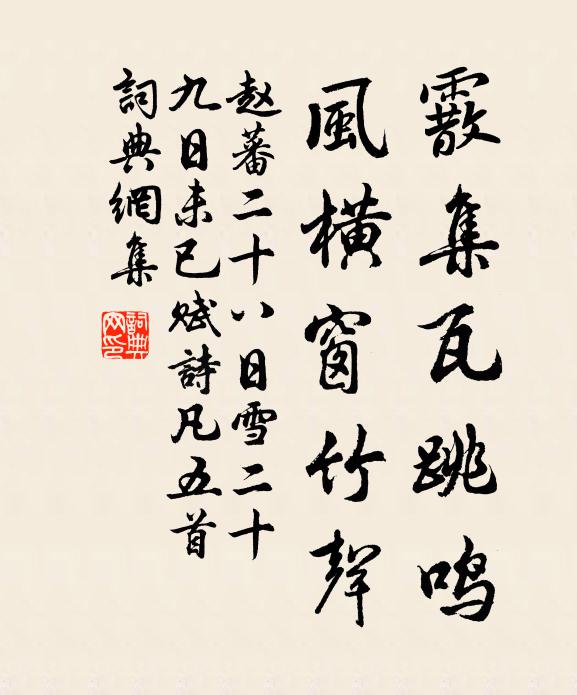 霰集瓦跳鸣
風橫窗竹聲
赵蕃二十八日雪二十
九日未已赋詩凡五首
詞典網集
詞典
网印